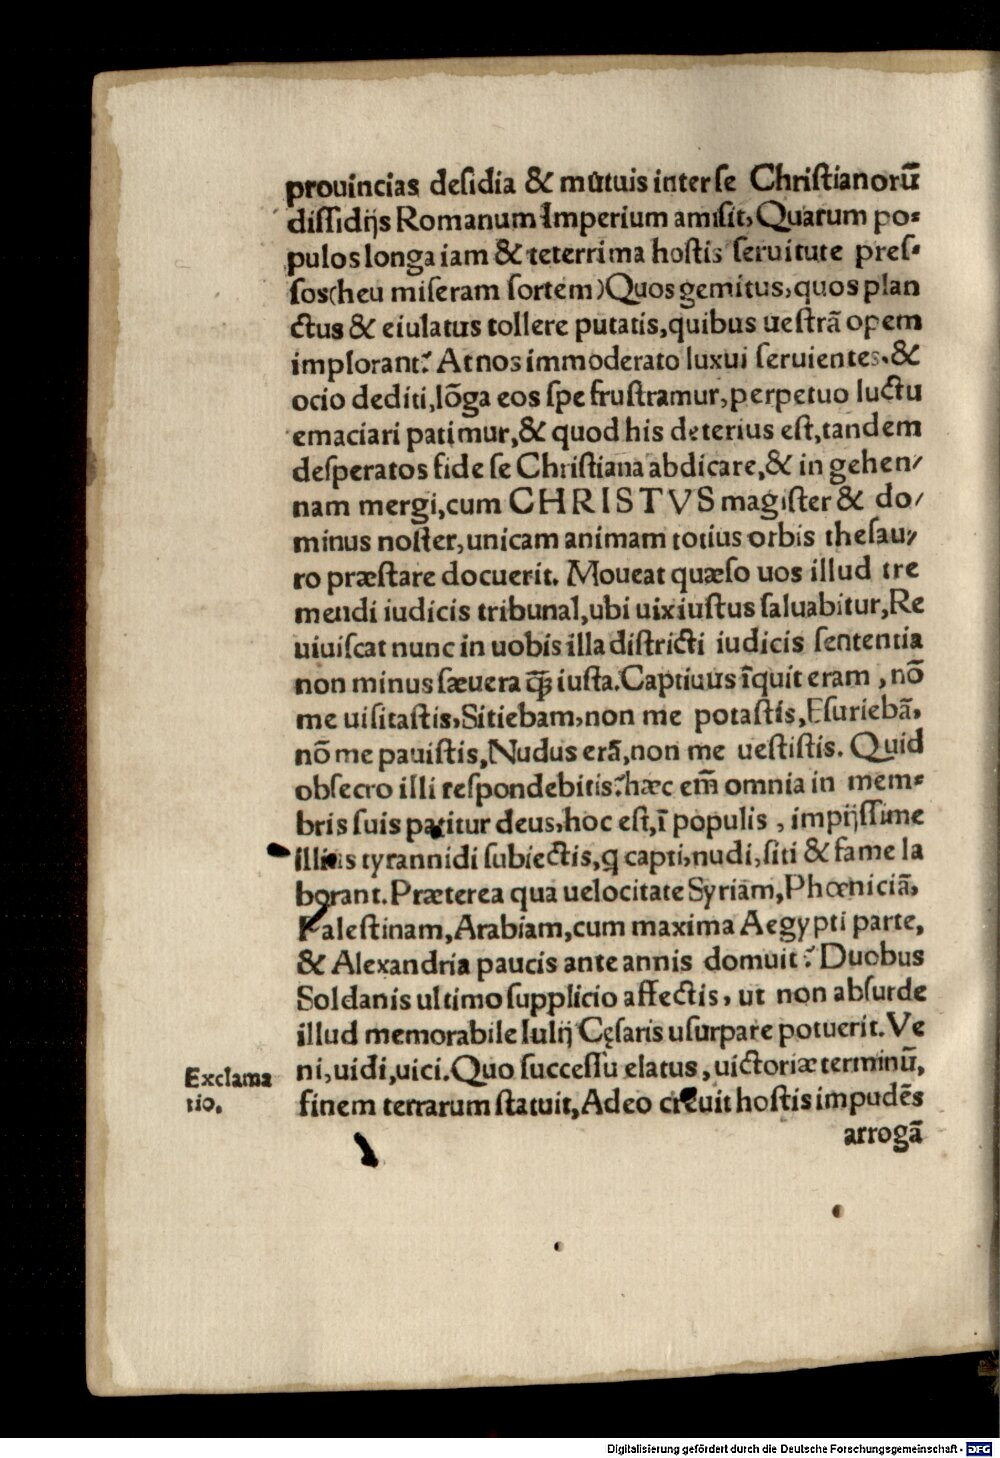 prouincias desidia & mutuis inter se Christianorū
dissidijs Romanum Imperium amisit, Quarum po⸗
pulos longa iam & teterrima hostis seruitute pres⸗
sos(heu miseram sortem)Quos gemitus, quos plan
ctus & eiulatus tollere putatis, quibus uestrā opem
implorant? At nos immoderato luxui seruientes, &
ocio dediti, lōga eos spe frustramur, perpetuo luctu
emaciari patimur, & quod his deterius est, tandem
desperatos fide se Christiana abdicare, & in gehen/
nam mergi, cum CHRISTVS magister & do/
minus noster, unicam animam totius orbis thesau/
ro præstare docuerit. Moueat quæso uos illud tre
mendi iudicis tribunal, ubi uix iustus saluabitur, Re
uiuiscat nunc in uobis illa districti iudicis sententia
non minus sæuera q̄ꝫ iusta. Captiuus īquit eram, nō
me uisitastis, Sitiebam, non me potastis, Esuriebā,
nō me pauistis, Nudus erā, non me uestistis. Quid
obsecro illi respondebitis? hæc em̄ omnia in mem⸗
bris suis patitur deus, hoc est, ī populis, impijssime
illius tyrannidi subiectis, q capti, nudi, siti & fame la
borant. Præterea qua uelocitate Syriam, Phœniciā,
Palestinam, Arabiam, cum maxima Aegypti parte,
& Alexandria paucis ante annis domuit? Duobus
Soldanis ultimo supplicio affectis, ut non absurde
illud memorabile Iulij Cęsaris usurpare potuerit. Ve
ni, uidi, uici. Quo successu elatus, uictoriæ terminū,
finem terrarum statuit, Adeo creuit hostis impudēs
arrogā
Exclama
tio.
Digitalisierung gefördert durch die Deutsche Forschungsgemeinschaft - DFG